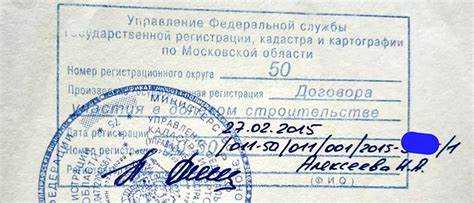 Управление Федеральной службы
государственной регистрации, кадастра и картографии
по Московской области
Номер регистрационного округа 50
Произведена государственная регистрация Договора
участия в долевом строительстве
Дата регистрации 27.02.2015
50 /011-50/011/001/2015- /1
Алексеева Н.А.
(ФИО)
МИНИСТЕРС
УПРАВЛЕНИЕ
КАДАСТРА